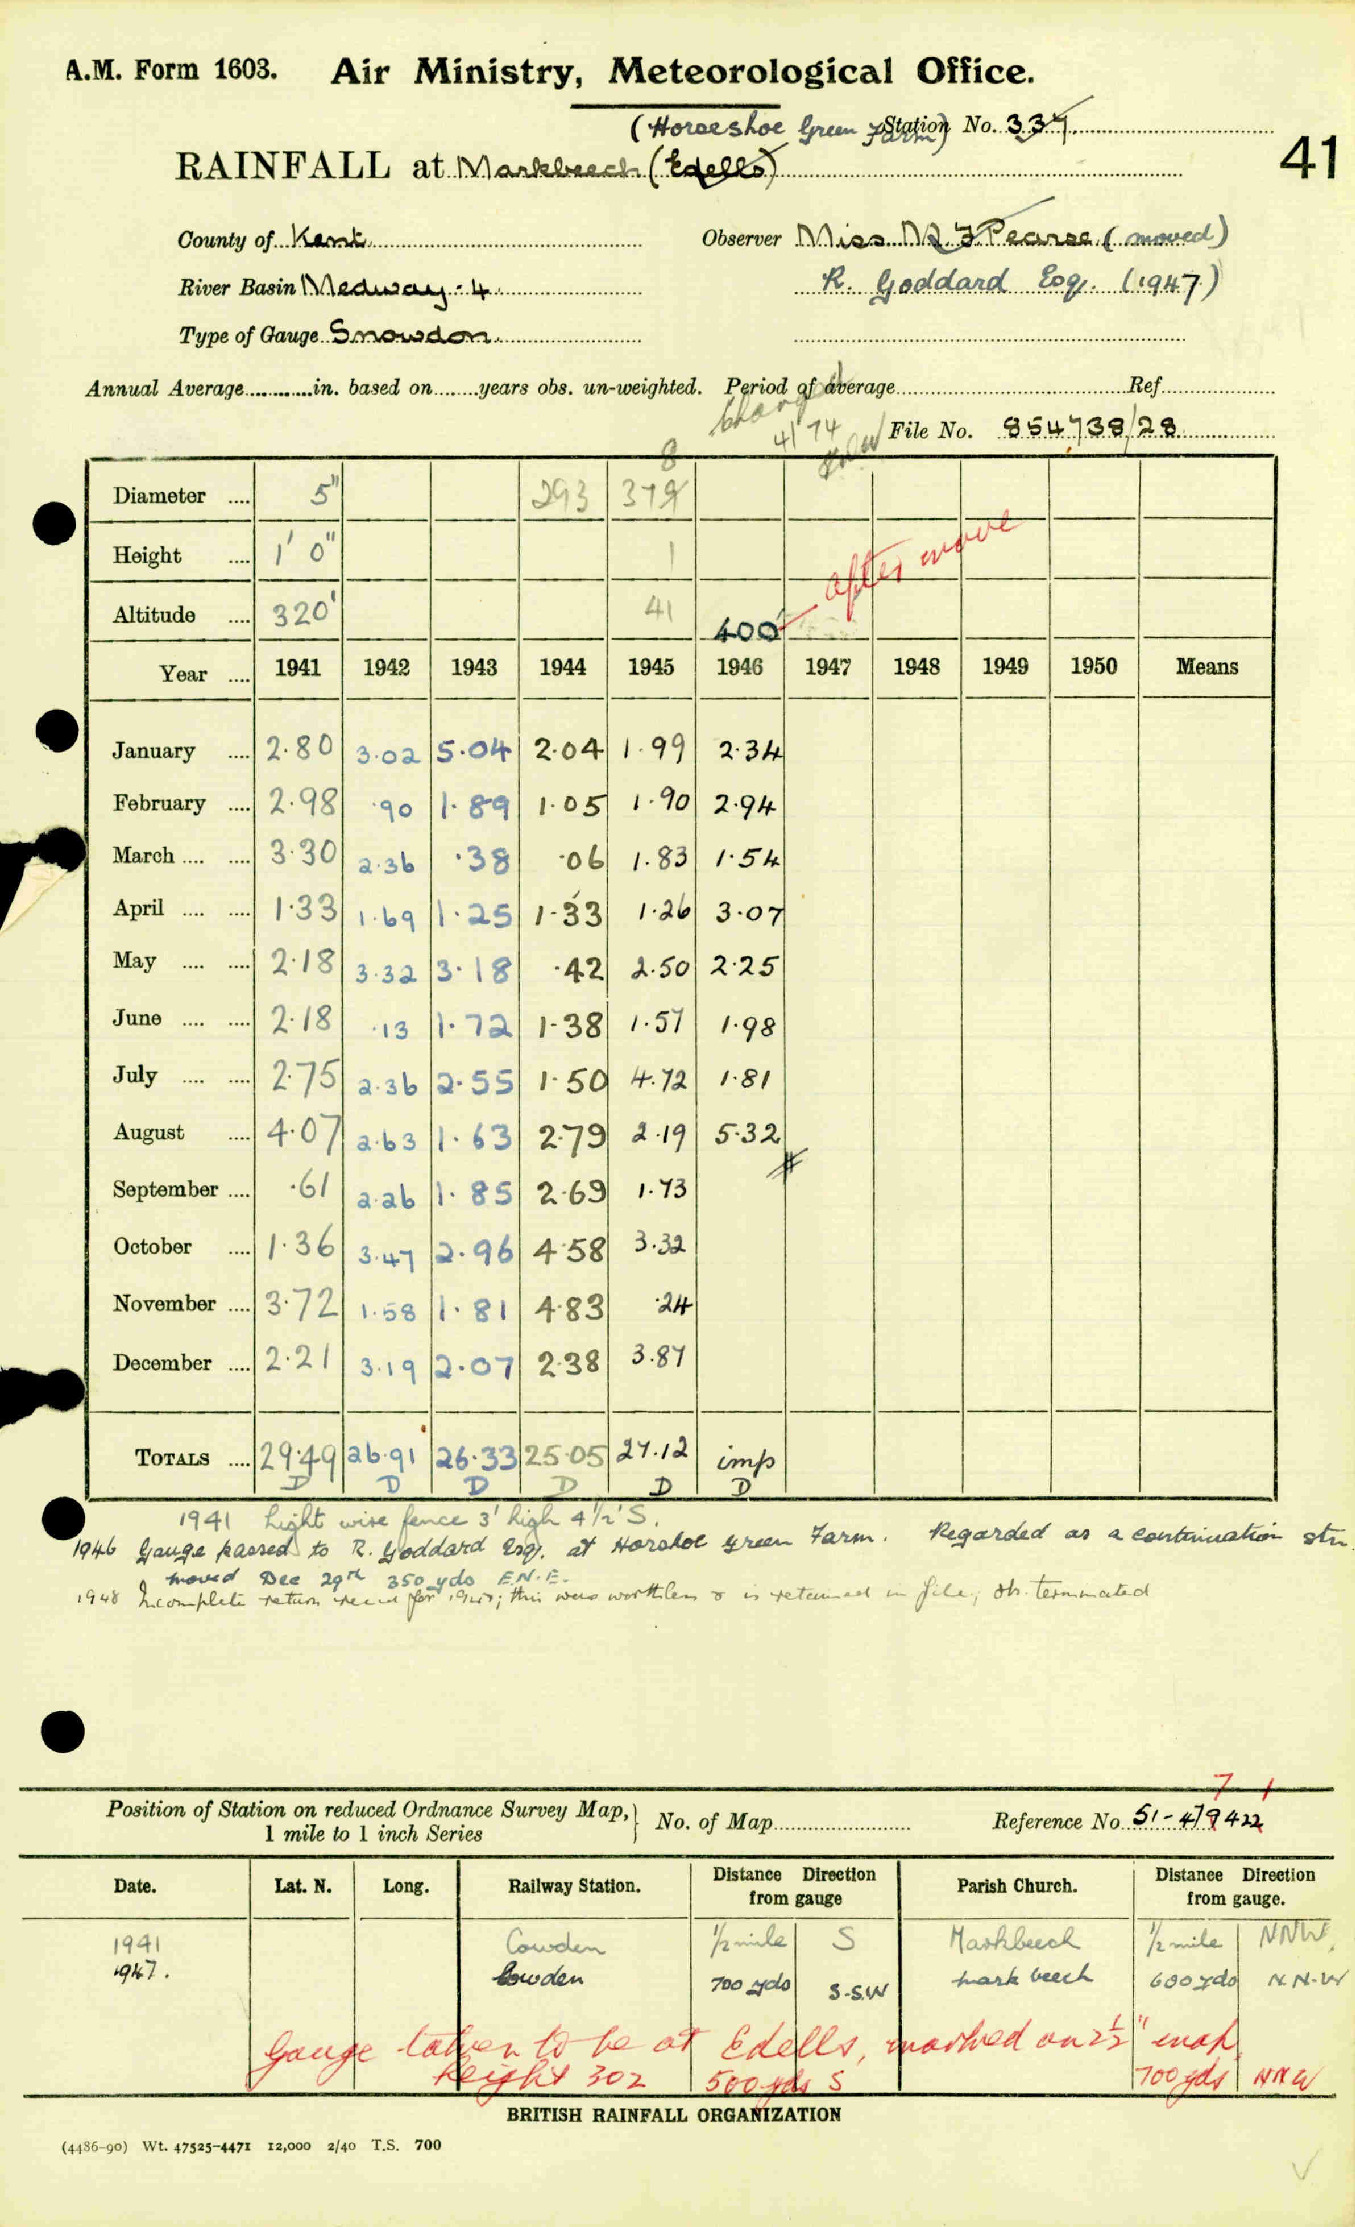 A.M. Form 1603. Air Ministry, Meteorological Office.
(Horseshoe Green Farm) Station No. 337
41
RAINFALL at Markbeech (Edells)
County of Kent Observer Miss M F Pearse (moved)
River Basin Medway. 4 R. Goddard Esq. (1947)
Type of Gauge Snowdon
Annual Average in. based on years obs. un-weighted. Period of average Ref
changed 41/74 File No. 854738/28
8
Diameter .... 5" 293 379
Height .... 1' 0" 1 after move
Altitude .... 320' 41 400'
Year .... 1941 1942 1943 1944 1945 1946 1947 1948 1949 1950 Means
January .... 2.80 3.02 5.04 2.04 1.99 2.34
February .... 2.98 .90 1.89 1.05 1.90 2.94
March .... .... 3.30 2.36 .38 .06 1.83 1.54
April .... .... 1.33 1.69 1.25 1.33 1.26 3.07
May .... .... 2.18 3.32 3.18 .42 2.50 2.25
June .... .... 2.18 .13 1.72 1.38 1.57 1.98
July .... .... 2.75 2.36 2.55 1.50 4.72 1.81
August .... 4.07 2.63 1.63 2.79 2.19 5.32
September .... .61 2.26 1.85 2.69 1.73
October .... 1.36 3.47 2.96 4.58 3.32
November .... 3.72 1.58 1.81 4.83 .24
December .... 2.21 3.19 2.07 2.38 3.87
TOTALS .... 29.49 26.91 26.33 25.05 27.12 imp
D D D D D D
1941 Light wire fence 3' high 4 1/2' S.
1946 Gauge passed to R. Goddard Esq. at Horshoe Green Farm. Regarded as a continuation stn
moved Dec 29th 350 yds E.N.E.
1948 Incomplete return rec'd for 1947; this was worthless & is retained in file; ob. terminated
7 1
Position of Station on reduced Ordnance Survey Map, 1 mile to 1 inch Series } No. of Map Reference No 51-479422
Date. Lat. N. Long. Railway Station. Distance Direction from gauge Parish Church. Distance Direction from gauge.
1941 Cowden 1/2 mile S Markbeech 1/2 mile NNW.
1947. Cowden 700 yds S.SW mark beech 600 yds N.N.W
Gauge taken to be at Edells, marked on 2 1/2" map,
height 302 500 yds S 700 yds NNW
BRITISH RAINFALL ORGANIZATION
(4486-90) Wt. 47525-4471 12,000 2/40 T.S. 700